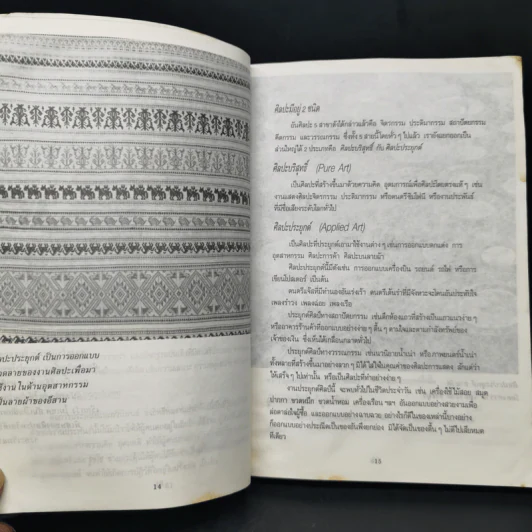 ศิลปะประยุกต์ เป็นการออกแบบ
ลวดลายของงานศิลปะเพื่อมา
ใช้งานในด้านอุตสาหกรรม
เป็นลายผ้าของอีสาน
14
ศิลปะมีอยู่ 2 ชนิด
อันศิลปะ 5 สาขาดังได้กล่าวแล้วคือ จิตรกรรม ประติมากรรม สถาปัตยกรรม
คีตกรรม และวรรณกรรม ซึ่งทั้ง 5 สายนี้โดยทั่ว ๆ ไปแล้ว เรายังแยกออกเป็น
ส่วนใหญ่ได้ 2 ประเภทคือ ศิลปะบริสุทธิ์ กับ ศิลปะประยุกต์
ศิลปะบริสุทธิ์ (Pure Art)
เป็นศิลปะที่สร้างขึ้นมาด้วยความคิด อุดมการณ์เพื่อศิลปะโดยตรงแท้ ๆ เช่น
งานแสดงศิลปะจิตรกรรม ประติมากรรม หรือดนตรีซิมโฟนี หรืองานประพันธ์
ที่มีชื่อเสียงระดับโลกทั่วไป
ศิลปะประยุกต์ (Applied Art)
เป็นศิลปะที่ประยุกต์เอามาใช้งานต่าง ๆ เช่นการออกแบบตกแต่ง การ
อุตสาหกรรม ศิลปะการค้า ศิลปะบนลายผ้า
ศิลปะประยุกต์นี้มีดังเช่น การออกแบบเครื่องบิน รถยนต์ รถไฟ หรือการ
เขียนโปสเตอร์ เป็นต้น
ดนตรีแจ๊สที่มีทำนองอันเร่งเร้า ดนตรีเต้นรำที่มีจังหวะจะโคนอันประทับใจ
เพลงรำวง เพลงฉ่อย เพลงเรือ
ประยุกต์ศิลป์ทางสถาปัตยกรรม เช่นตึกห้องแถวที่สร้างเป็นแถวแนวง่าย ๆ
หรืออาคารร้านค้าที่ออกแบบอย่างง่าย ๆ ตื้น ๆ ตามใจและตามกำลังทรัพย์ของ
เจ้าของเงิน ซึ่งเห็นได้เกลื่อนกลาดทั่วไป
ประยุกต์ศิลป์ทางวรรณกรรม เช่นนวนิยายน้ำเน่า หรือภาพยนตร์น้ำเน่า
ทั้งหลายที่สร้างขึ้นมาอย่างลวก ๆ มิได้ใส่ใจในคุณค่าของศิลปะการแสดง สักแต่ว่า
ให้เสร็จ ๆ ไปเท่านั้น หรือเป็นศิลปะที่ทำอย่างง่าย ๆ
งานประยุกต์ศิลป์นี้ จะพบทั่วไปในชีวิตประจำวัน เช่น เครื่องใช้ไม้สอย สมุด
ปากกา ขวดหมึก ขวดน้ำหอม เครื่องเรือน ฯลฯ อันออกแบบอย่างสวยงามเพื่อ
ต่อการออกแบบ
ก็ออกแบบอย่างประณีตเป็นของอันพึงยกย่อง มิได้จัดเป็นของตื้น ๆ ไม่ดีไปเสียหมด
ทีเดียว
15